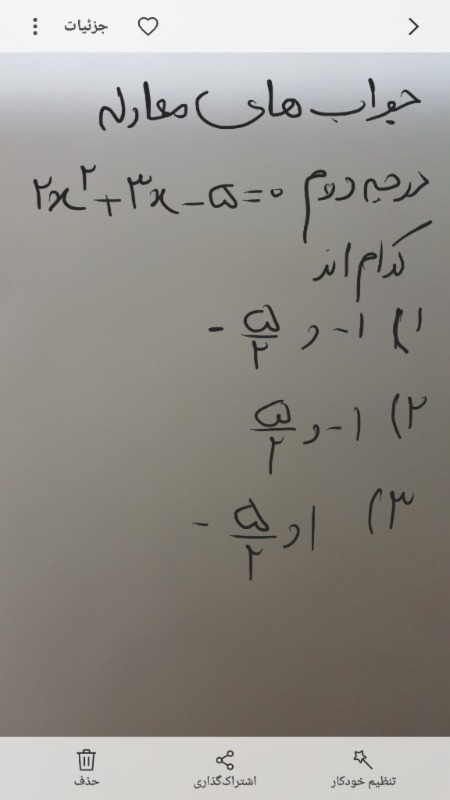 جزئیات
جواب های معادله
درجه دوم ۲x²+۳x-۵=۰
کدام اند
۱) ۱- و ۵/۲ -
۲) ۱- و ۵/۲
۳) ۱ و ۵/۲ -
تنظیم خودکار
اشتراک‌گذاری
حذف